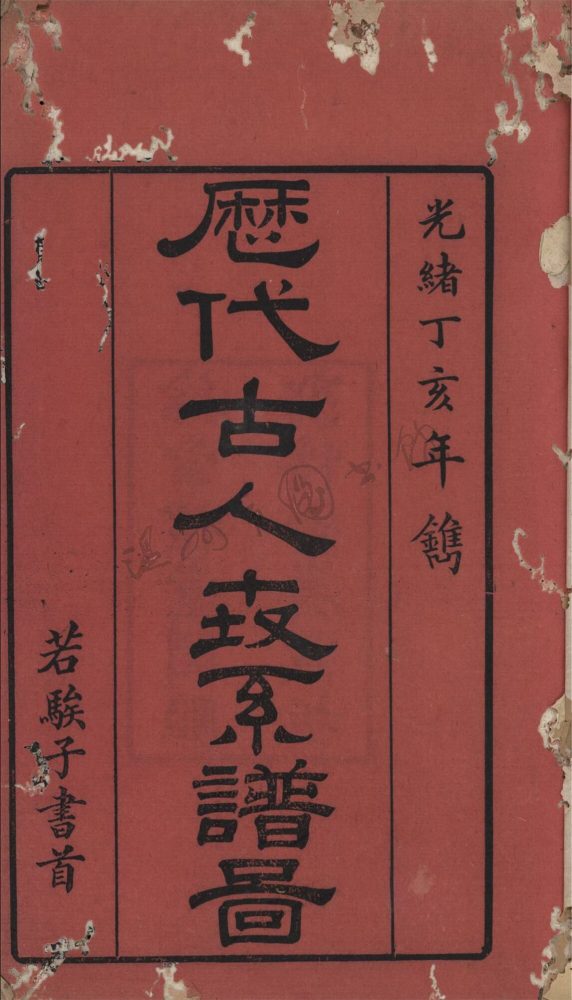 光緒丁亥年鐫
歷代古人世系譜啚
若騃子書首